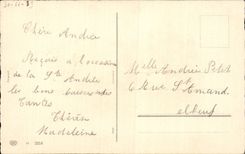 Chère Andrée
Reçois à l'occasion
de la Ste Andrée
les bons baisers des
Tantes
Thérèse
Madeleine
Melle Andrée Petit
6 Rue St Amand
Elbeuf